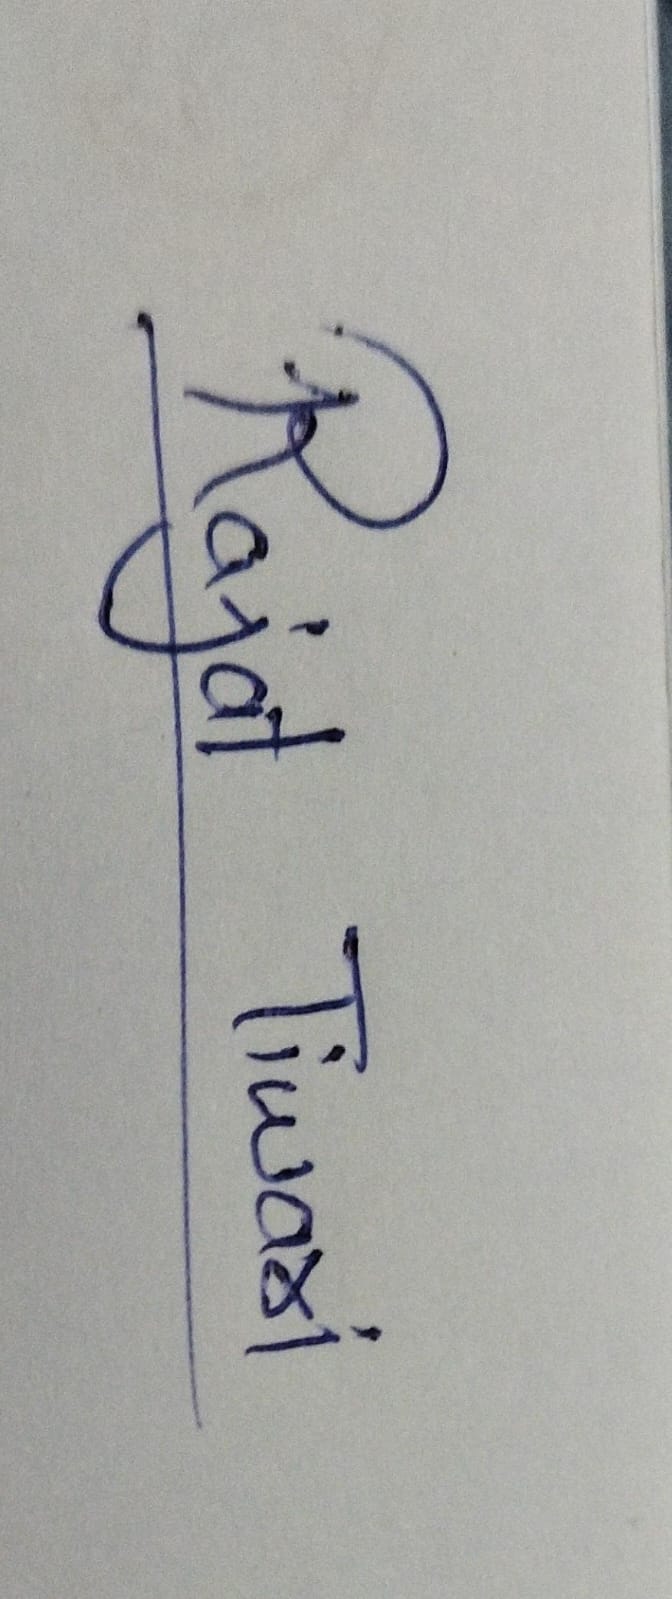 Rajat Tiwari